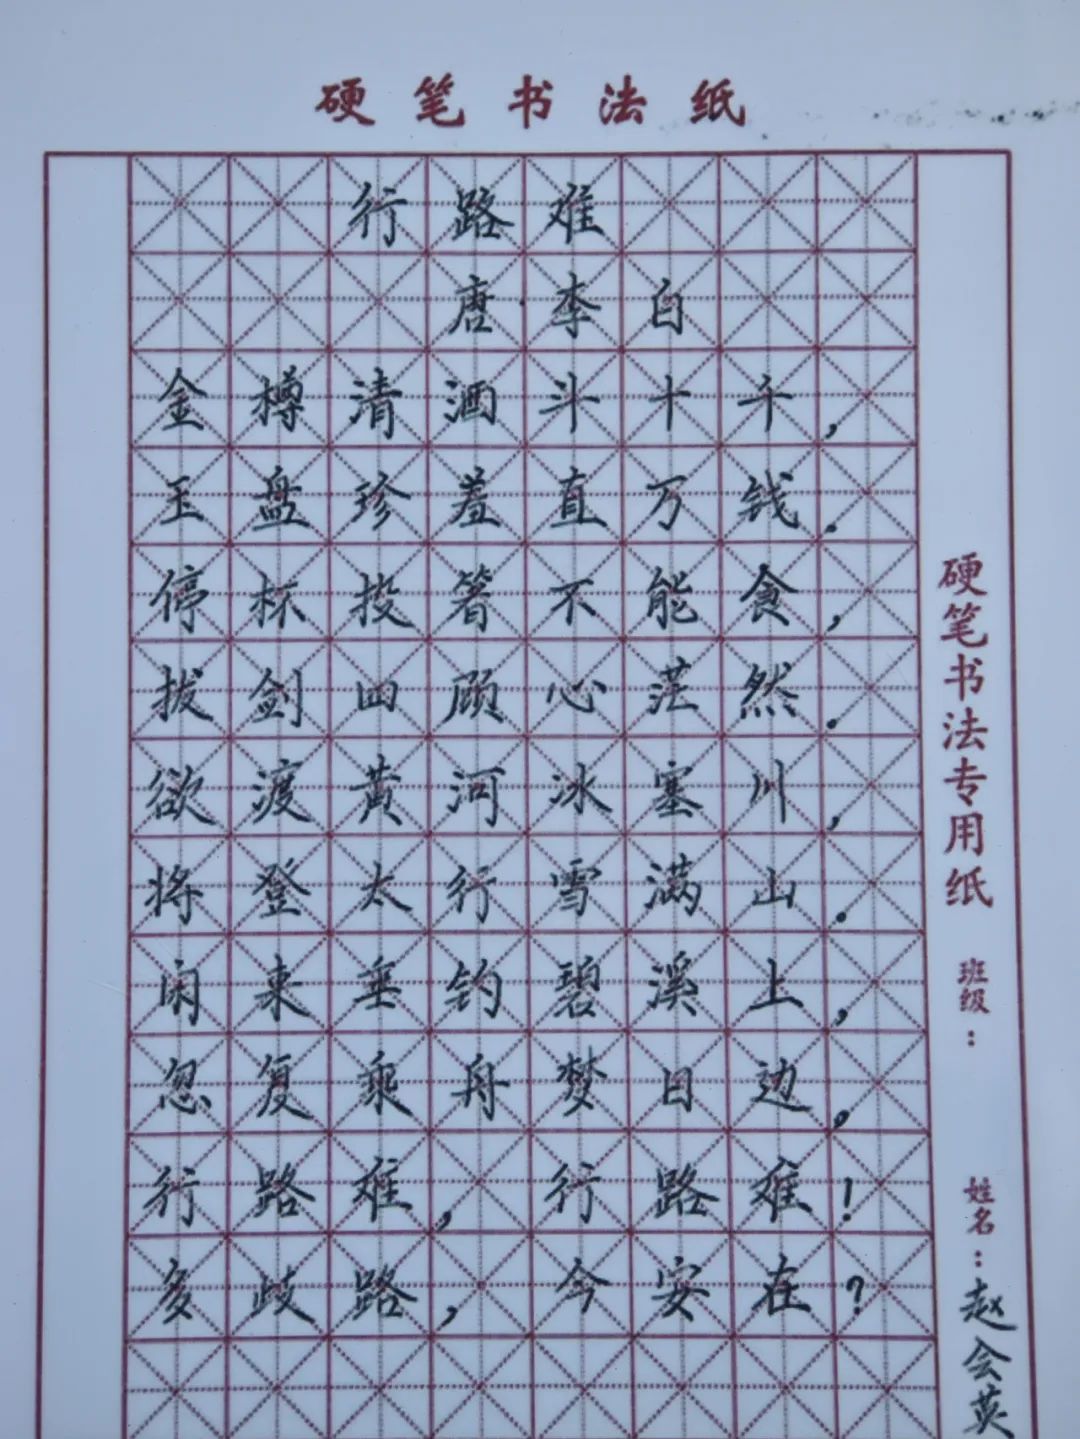 硬笔书法纸
行路难
唐·李白
金樽清酒斗十千，
玉盘珍羞直万钱。
停杯投箸不能食，
拔剑四顾心茫然。
欲渡黄河冰塞川，
将登太行雪满山。
闲来垂钓碧溪上，
忽复乘舟梦日边。
行路难，行路难！
多歧路，今安在？
硬笔书法专用纸
班级：
姓名：赵会英